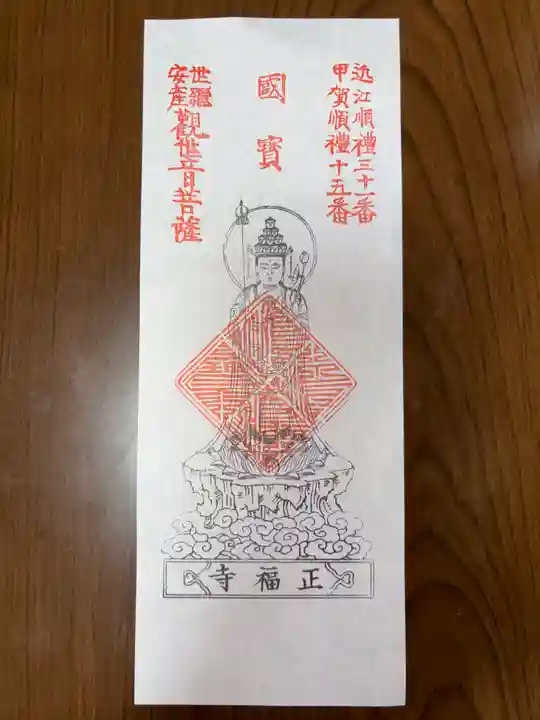 近江順禮三十一番
甲賀順禮十五番
國寶
世繼
安産觀世音菩薩
正福寺